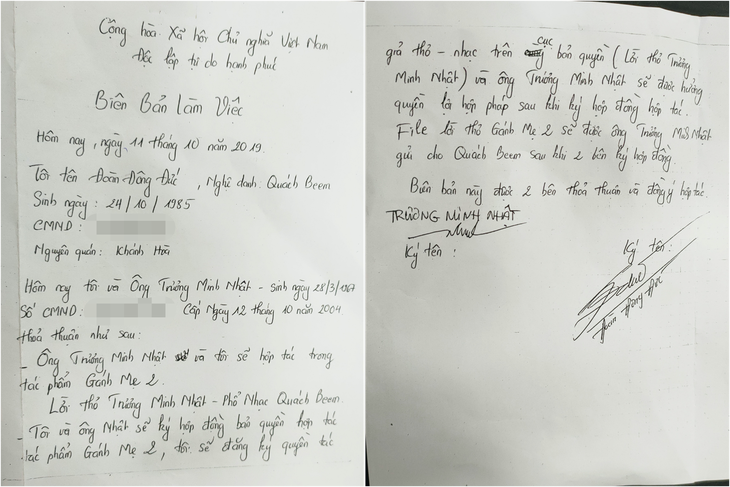 Cộng hòa Xã hội Chủ nghĩa Việt Nam
Độc lập tự do hạnh phúc
Biên Bản Làm Việc
Hôm nay, ngày 11 tháng 10 năm 2019.
Tôi tên Đoàn Đông Đức, Nghệ danh: Quách Beem
Sinh ngày: 24/10/1985
CMND:
Nguyên quán: Khánh Hoà
Hôm nay tôi và Ông Trương Minh Nhật - sinh ngày 28/3/1967
Số CMND: Cấp Ngày 12 tháng 10 năm 2004.
thoả thuận như sau:
- Ông Trương Minh Nhật và tôi sẽ hợp tác trong
tác phẩm Gánh Mẹ 2.
Lời thơ Trương Minh Nhật - Phổ Nhạc Quách Beem.
- Tôi và ông Nhật sẽ ký hợp đồng bản quyền hợp tác
tác phẩm Gánh Mẹ 2, tôi sẽ đăng ký quyền tác
giả thơ - nhạc trên cục bản quyền (Lời thơ Trương
Minh Nhật) và ông Trương Minh Nhật sẽ được hưởng
quyền lợi hợp pháp sau khi ký hợp đồng hợp tác.
File lời thơ Gánh Mẹ 2 sẽ được ông Trương Minh Nhật
gửi cho Quách Beem sau khi 2 bên ký hợp đồng.
Biên bản này được 2 bên thoả thuận và đồng ý hợp tác.
TRƯƠNG MINH NHẬT
Ký tên:
Ký tên:
Đoàn Đông Đức